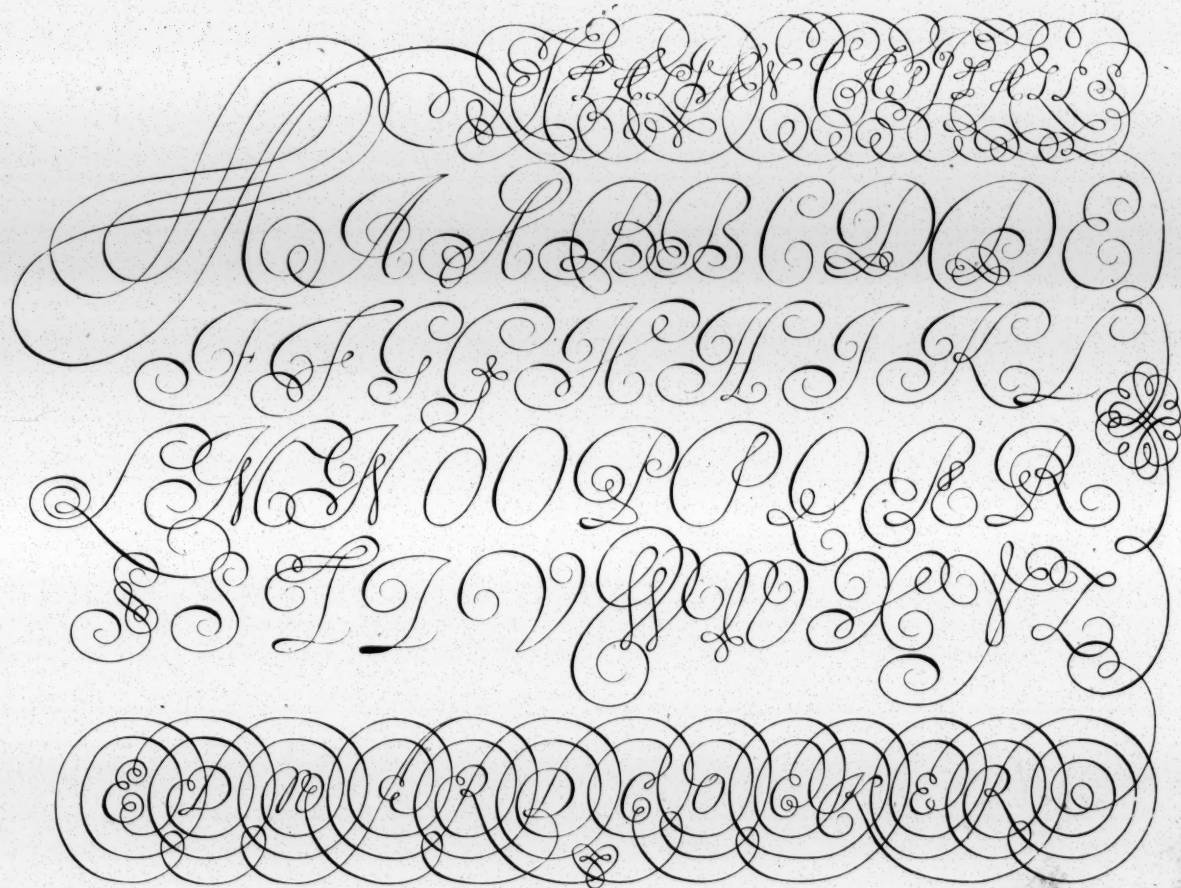 ITALIAN CAPITALS
A A A B B C D D E
F F G G H H I K L
L M N O O P P Q R R
S S T T V W W X Y Z
EDWARD COCKER